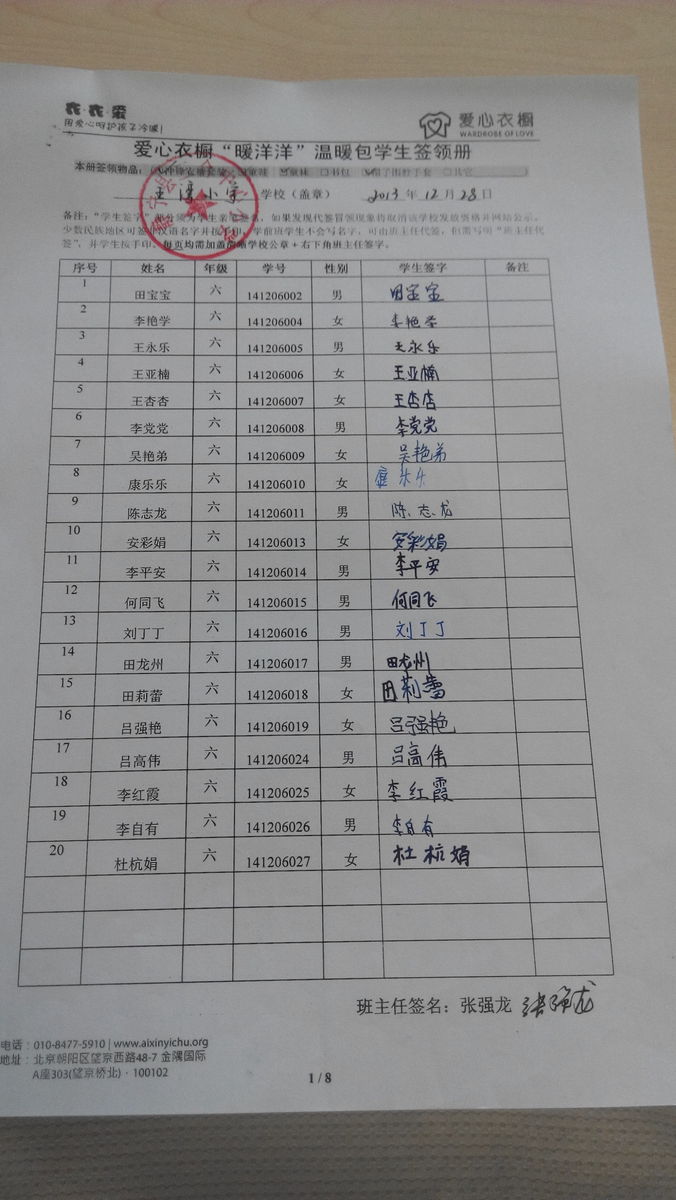 衣·衣·爱
用爱心呵护孩子冷暖!
爱心衣橱
WARDROBE OF LOVE
爱心衣橱“暖洋洋”温暖包学生签领册
本册签领物品:
小学 学校(盖章) 2013年12月28日
备注:“学生签字”
如果发现代签冒领现象将取消该学校发放资格并网站公示。
少数民族地区可签
汉语名字并按手印。学前班学生不会写名字,可由班主任代签,但需写明“班主任代
签”,并学生按手印。每页均需加盖
学校公章+右下角班主任签字。
序号 姓名 年级 学号 性别 学生签字 备注
1 田宝宝 六 141206002 男 田宝宝
2 李艳学 六 141206004 女 李艳学
3 王永乐 六 141206005 男 王永乐
4 王亚楠 六 141206006 女 王亚楠
5 王杏杏 六 141206007 女 王杏杏
6 李党党 六 141206008 男 李党党
7 吴艳弟 六 141206009 女 吴艳弟
8 康乐乐 六 141206010 女 康乐乐
9 陈志龙 六 141206011 男 陈志龙
10 安彩娟 六 141206013 女 安彩娟
11 李平安 六 141206014 男 李平安
12 何同飞 六 141206015 男 何同飞
13 刘丁丁 六 141206016 男 刘丁丁
14 田龙州 六 141206017 男 田龙州
15 田莉蕾 六 141206018 女 田莉蕾
16 吕强艳 六 141206019 女 吕强艳
17 吕高伟 六 141206024 男 吕高伟
18 李红霞 六 141206025 女 李红霞
19 李自有 六 141206026 男 李自有
20 杜杭娟 六 141206027 女 杜杭娟
班主任签名:张强龙 张强龙
电话:010-8477-5910 | www.aixinyichu.org
地址:北京朝阳区望京西路48-7 金隅国际
A座303(望京桥北)·100102
1 / 8